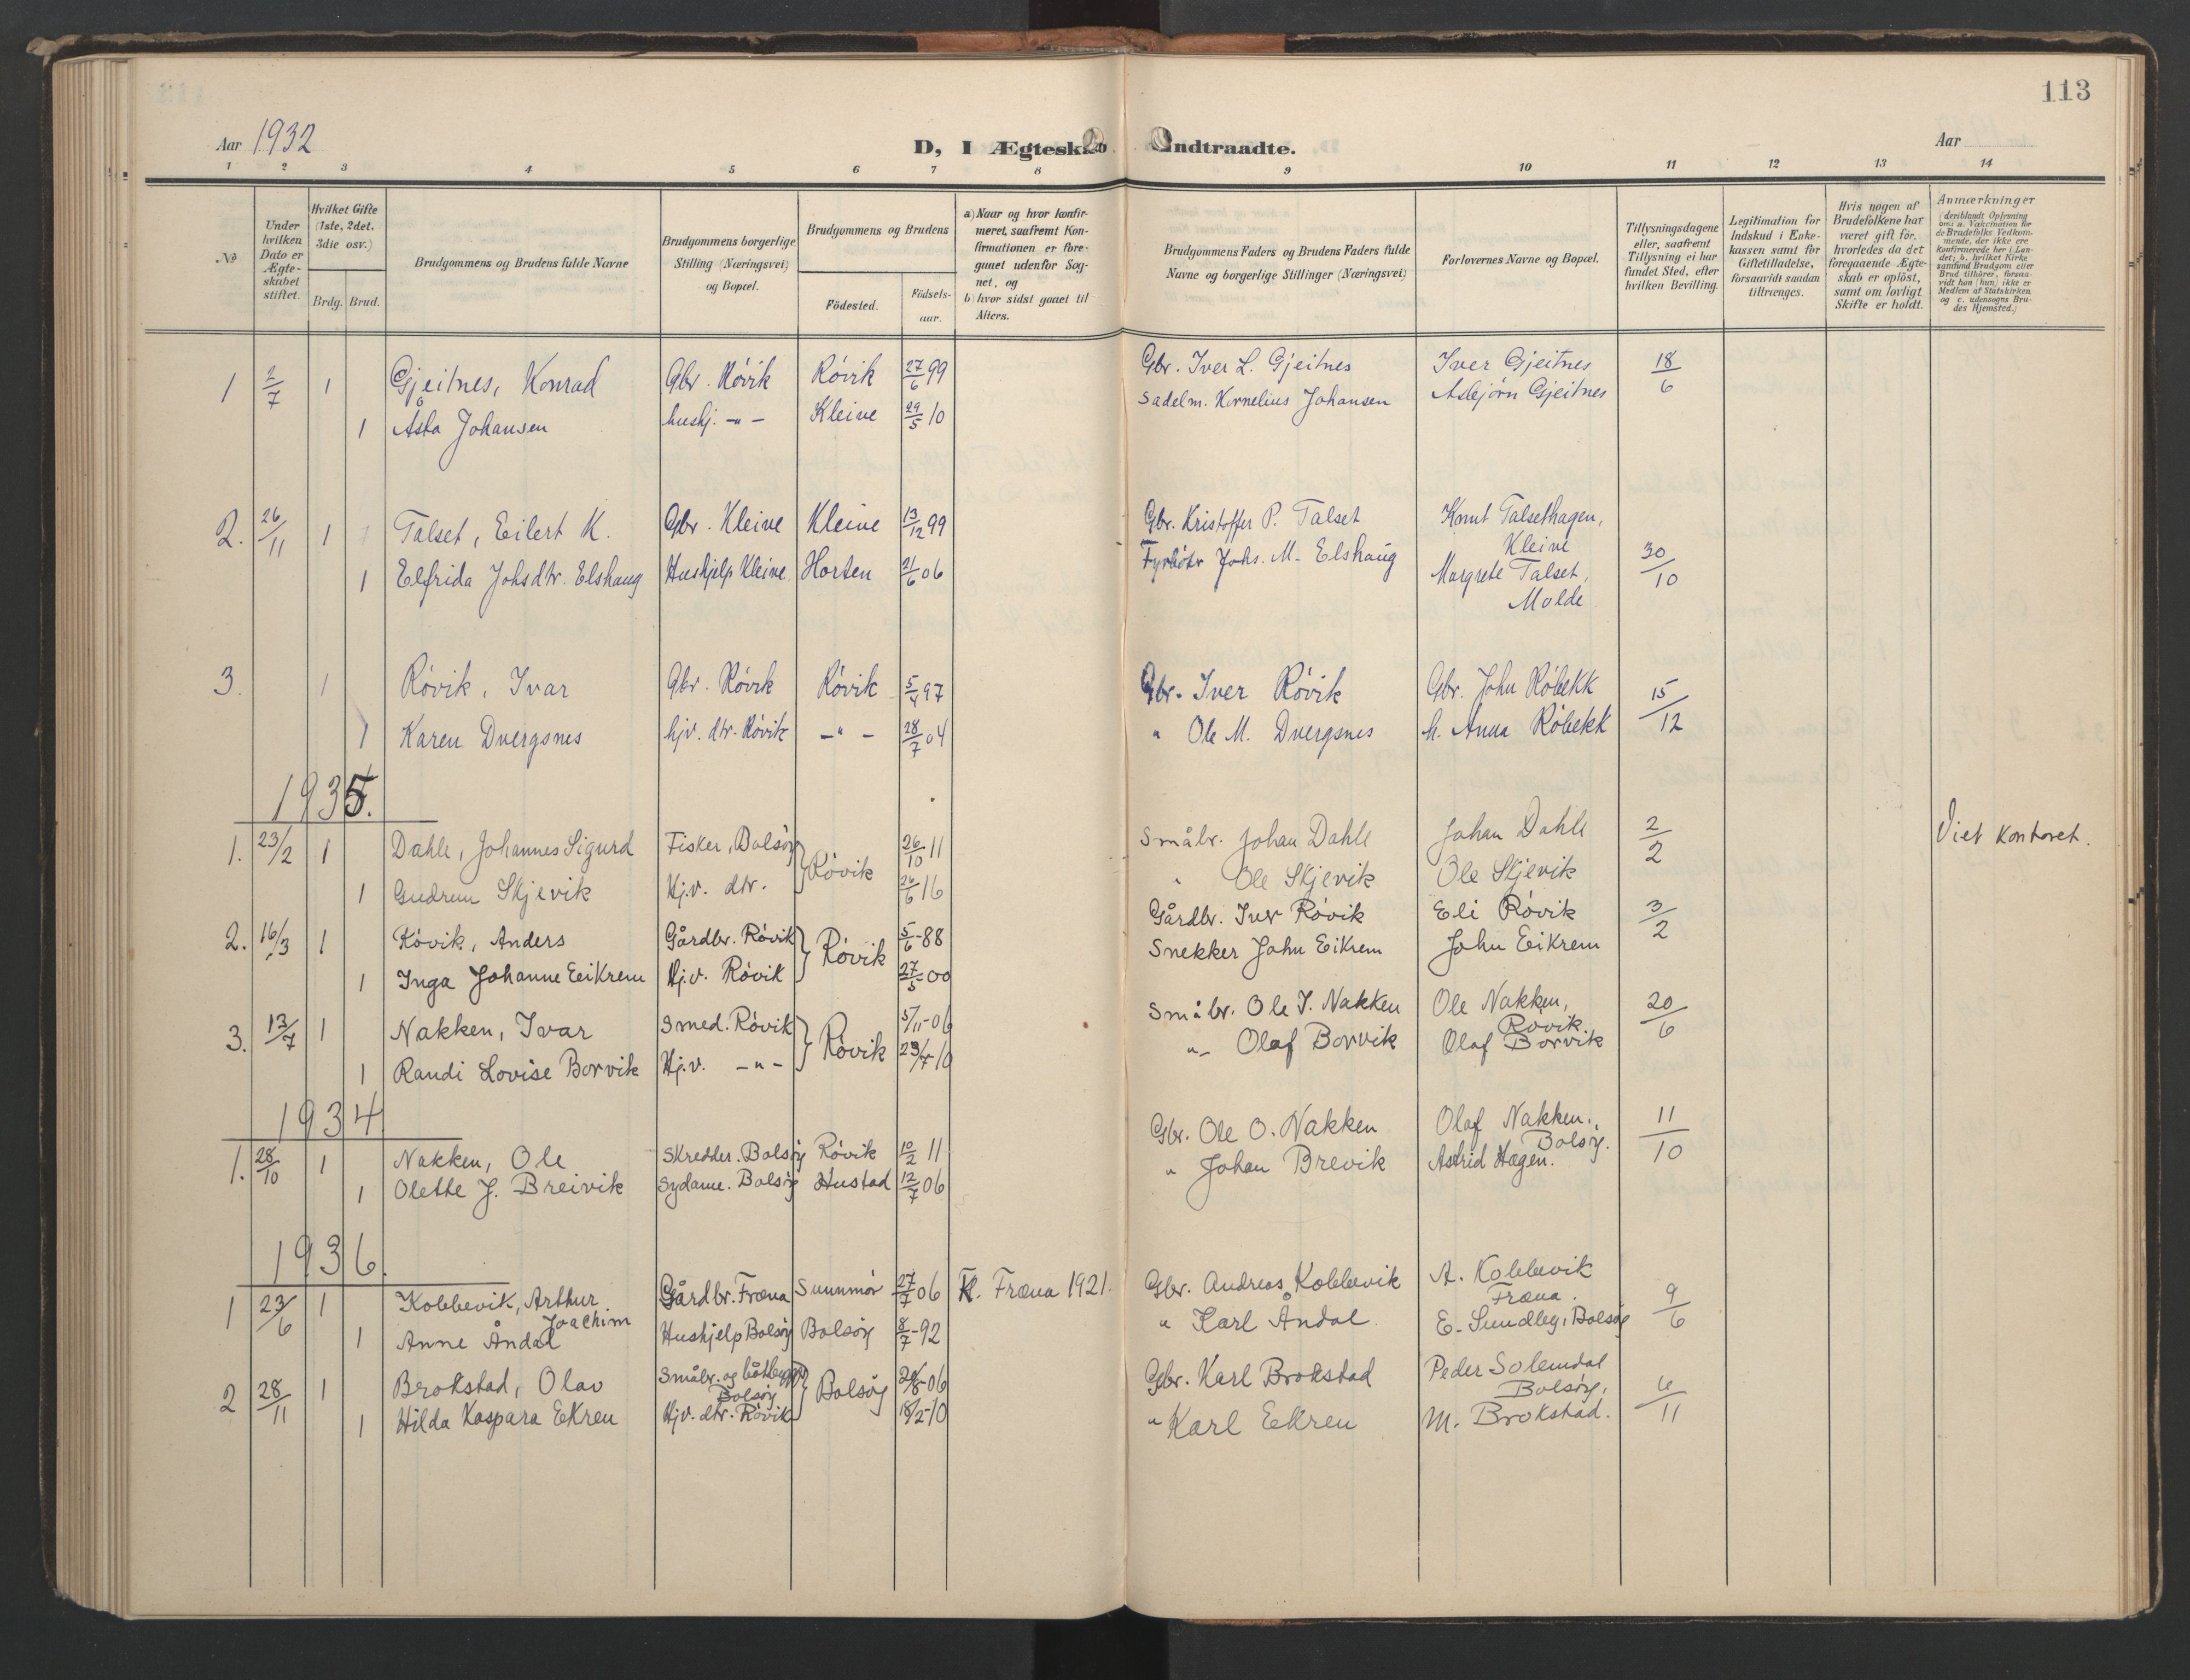 113
Aar 1932
D, I Ægteskab Indtraadte.
Aar
1 2 3 4 5 6 7 8 9 10 11 12 13 14
No
Under hvilken Dato er Ægteskabet stiftet.
Hvilket Gifte (1ste, 2det, 3die osv.)
Brdg. Brud.
Brudgommens og Brudens fulde Navne
Brudgommens borgerlige Stilling (Næringsvei) og Bopæl.
Brudgommens og Brudens
Födested. Födselsaar.
a) Naar og hvor konfirmeret, saafremt Konfirmationen er foregaaet udenfor Sognet, og
b) hvor sidst gaaet til Alters.
Brudgommens Faders og Brudens Faders fulde Navne og borgerlige Stillinger (Næringsvei)
Forlovernes Navne og Bopæl.
Tillysningsdagene eller, saafremt Tillysning ei har fundet Sted, efter hvilken Bevilling.
Legitimation for Indskud i Enkekassen samt for Giftetilladelse, forsaavidt saadan tiltrænges.
Hvis nogen af Brudefolkene har været gift för, hvorledes da det foregaaende Ægteskab er oplöst, samt om lovligt Skifte er holdt.
Anmærkninger (deriblandt Oplysning om: a. Vakcination for de Brudefolks Vedkommende, der ikke ere konfirmerede her i Landet; b. hvilket Kirkesamfund Brudgom eller Brud tilhörer, forsaavidt han (hun) ikke er Medlem af Statskirken, og c. udensogns Brudes Hjemsted.)
1 2/7 1 Gjeitnes, Konrad Gbr. Róvik Róvik 27/6 99 Gbr. Iver L. Gjeitnes Iver Gjeitnes 18/6
1 Åsta Johansen hushj. -"- Kleive 29/5 10 Sadelm. Kornelius Johansen Asbjørn Gjeitnes
2. 26/11 1 Talset, Eilert K. Gbr. Kleive Kleive 13/12 99 Gbr. Kristoffer P. Talset Knut Talsethagen, Kleive 30/10
1 Elfrida Johsdtr. Elshaug Hushjelp Kleive Horten 21/6 06 Fyrbóter Johs. M. Elshaug Margrete Talset, Molde
3. 1 Róvik, Ivar Gbr. Róvik Róvik 5/4 97 Gbr. Iver Róvik Gbr. John Róbekk 15/12
1 Karen Dvergsnes hjv. dtr. Róvik -"- 28/7 04 " Ole M. Dvergsnes h. Anna Róbekk
1935.
1. 23/2 1 Dahle, Johannes Sigurd Fisker, Bolsóy Róvik 26/10 11 Småbr. Johan Dahle Johan Dahle 2/2 Viet kontoret.
1 Gudrun Skjevik Hj.v. dtr. 26/6 16 " Ole Skjevik Ole Skjevik
2. 16/3 1 Róvik, Anders Gårdbr. Róvik Róvik 5/6-88 Gårdbr. Iver Róvik Eli Róvik 3/2
1 Inga Johanne Eikrem Hj.v. Róvik 27/5-00 Snekker John Eikrem John Eikrem
3. 13/7 1 Nakken, Ivar Smed. Róvik Róvik 5/11-06 Småbr. Ole J. Nakken Ole Nakken, Róvik 20/6
1 Randi Lovise Borvik Hj.v. -"- 23/4-10 "- Olaf Borvik Olaf Borvik
1934
1. 28/10 1 Nakken, Ole Skredder. Bolsóy Róvik 10/2 11 Gbr. Ole O. Nakken Olaf Nakken., Bolsóy. 11/10
1 Olette J. Breivik Sydame. Bolsóy Hustad 12/7 06 " Johan Brevik Astrid Hagen.
1936.
1 23/6 1 Kobbevik, Arthur Joachim Gårdbr. Fræna Sunnmór 27/7 06 K. Fræna 1921. Gbr. Andreas Kobbevik A. Kobbevik Fræna. 9/6
1 Anne Åndal Hushjelp Bolsóy Bolsóy 8/7-92 " Karl Åndal E. Sundby, Bolsóy
2 28/11 1 Brokstad, Olav Småbr. og båtbygger Bolsóy Bolsóy 06 Gbr. Karl Brokstad Peder Solemdal Bolsóy, 6/11
1 Hilda Kaspara Ekren Hjv. dtr. Róvik 18/2-10 " Karl Ekren M. Brokstad.